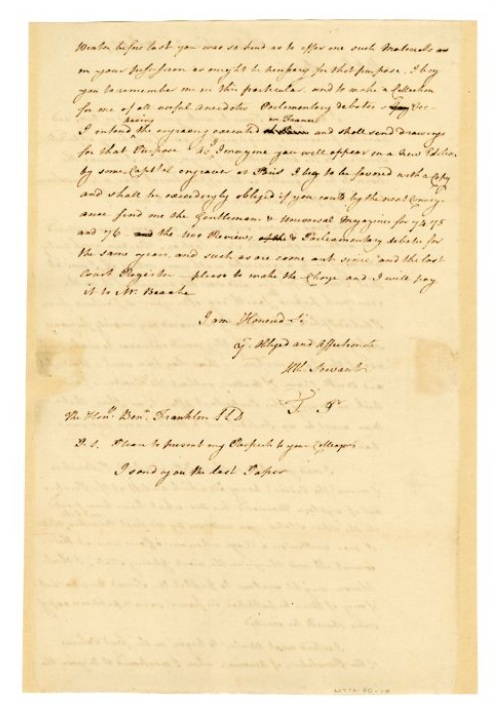 Winter before last you was so kind as to offer me such Materials as
in your Possession as might be necessary for that purpose. I beg
you to remember me in this particular. and to make a Collection
for me of all useful Anecdotes Parliamentary debates &c
I intend having the engraving executed in France and shall send drawings
for that Purpose As I imagine you will appear in a new Edition
by some Capital engraver at Paris I beg to be favored with a Copy
and shall be exceedingly obliged if you could by the next Convey-
ance send me the Gentleman & Universal Magazines for 74 75
and 76 and the two Reviews & Parliamentary debates for
the same years and such as are come out since and the last
Court Register please to make the Charge and I will pay
it to Mr. Beache
I am Honored Sir
Obliged and Affectionate
Hble Servant
The Honl. Benn. Franklin LLD
P. S. Please to present my Respects to your Colleagues
I send you the last Paper